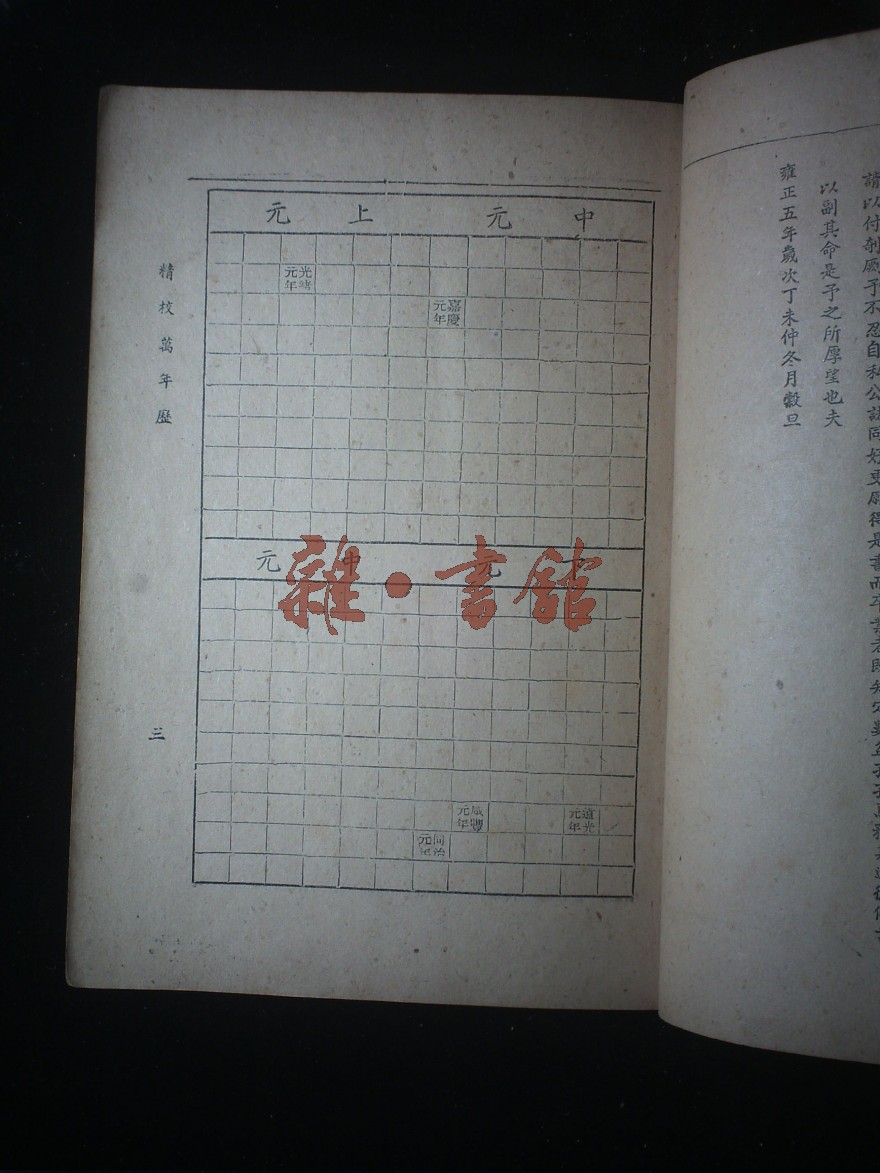 請以付剞劂予不忍自私公諸同好更願得是書而卒業者既知
以副其命是予之所厚望也夫
雍正五年歲次丁未仲冬月穀旦
中元
上元
嘉慶元年
光緒元年
元
中元
道光元年
咸豐元年
同治元年
精校萬年歷
三
雜·書館